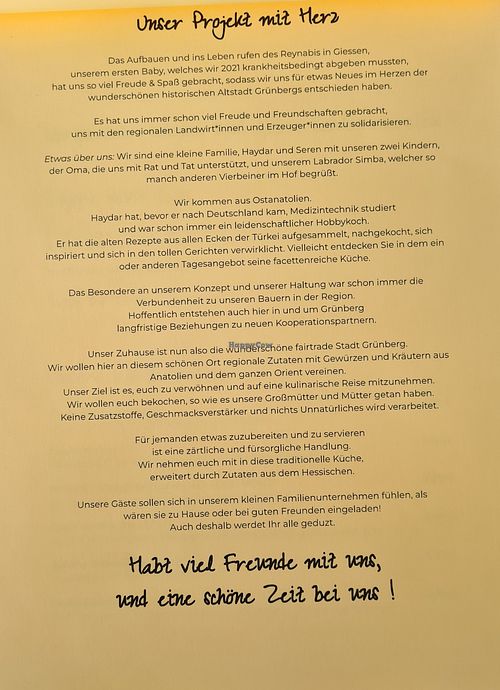 Unser Projekt mit Herz
Das Aufbauen und ins Leben rufen des Reynabis in Giessen,
unserem ersten Baby, welches wir 2021 krankheitsbedingt abgeben mussten,
hat uns so viel Freude & Spaß gebracht, sodass wir uns für etwas Neues im Herzen der
wunderschönen historischen Altstadt Grünbergs entschieden haben.
Es hat uns immer schon viel Freude und Freundschaften gebracht,
uns mit den regionalen Landwirt*innen und Erzeuger*innen zu solidarisieren.
Etwas über uns: Wir sind eine kleine Familie, Haydar und Seren mit unseren zwei Kindern,
der Oma, die uns mit Rat und Tat unterstützt, und unserem Labrador Simba, welcher so
manch anderen Vierbeiner im Hof begrüßt.
Wir kommen aus Ostanatolien.
Haydar hat, bevor er nach Deutschland kam, Medizintechnik studiert
und war schon immer ein leidenschaftlicher Hobbykoch.
Er hat die alten Rezepte aus allen Ecken der Türkei aufgesammelt, nachgekocht, sich
inspiriert und sich in den tollen Gerichten verwirklicht. Vielleicht entdecken Sie in dem ein
oder anderen Tagesangebot seine facettenreiche Küche.
Das Besondere an unserem Konzept und unserer Haltung war schon immer die
Verbundenheit zu unseren Bauern in der Region.
Hoffentlich entstehen auch hier in und um Grünberg
langfristige Beziehungen zu neuen Kooperationspartnern.
Unser Zuhause ist nun also die wunderschöne fairtrade Stadt Grünberg.
Wir wollen hier an diesem schönen Ort regionale Zutaten mit Gewürzen und Kräutern aus
Anatolien und dem ganzen Orient vereinen.
Unser Ziel ist es, euch zu verwöhnen und auf eine kulinarische Reise mitzunehmen.
Wir wollen euch bekochen, so wie es unsere Großmütter und Mütter getan haben.
Keine Zusatzstoffe, Geschmacksverstärker und nichts Unnatürliches wird verarbeitet.
Für jemanden etwas zuzubereiten und zu servieren
ist eine zärtliche und fürsorgliche Handlung.
Wir nehmen euch mit in diese traditionelle Küche,
erweitert durch Zutaten aus dem Hessischen.
Unsere Gäste sollen sich in unserem kleinen Familienunternehmen fühlen, als
wären sie zu Hause oder bei guten Freunden eingeladen!
Auch deshalb werdet Ihr alle geduzt.
Habt viel Freunde mit uns,
und eine schöne Zeit bei uns !
HappyCow